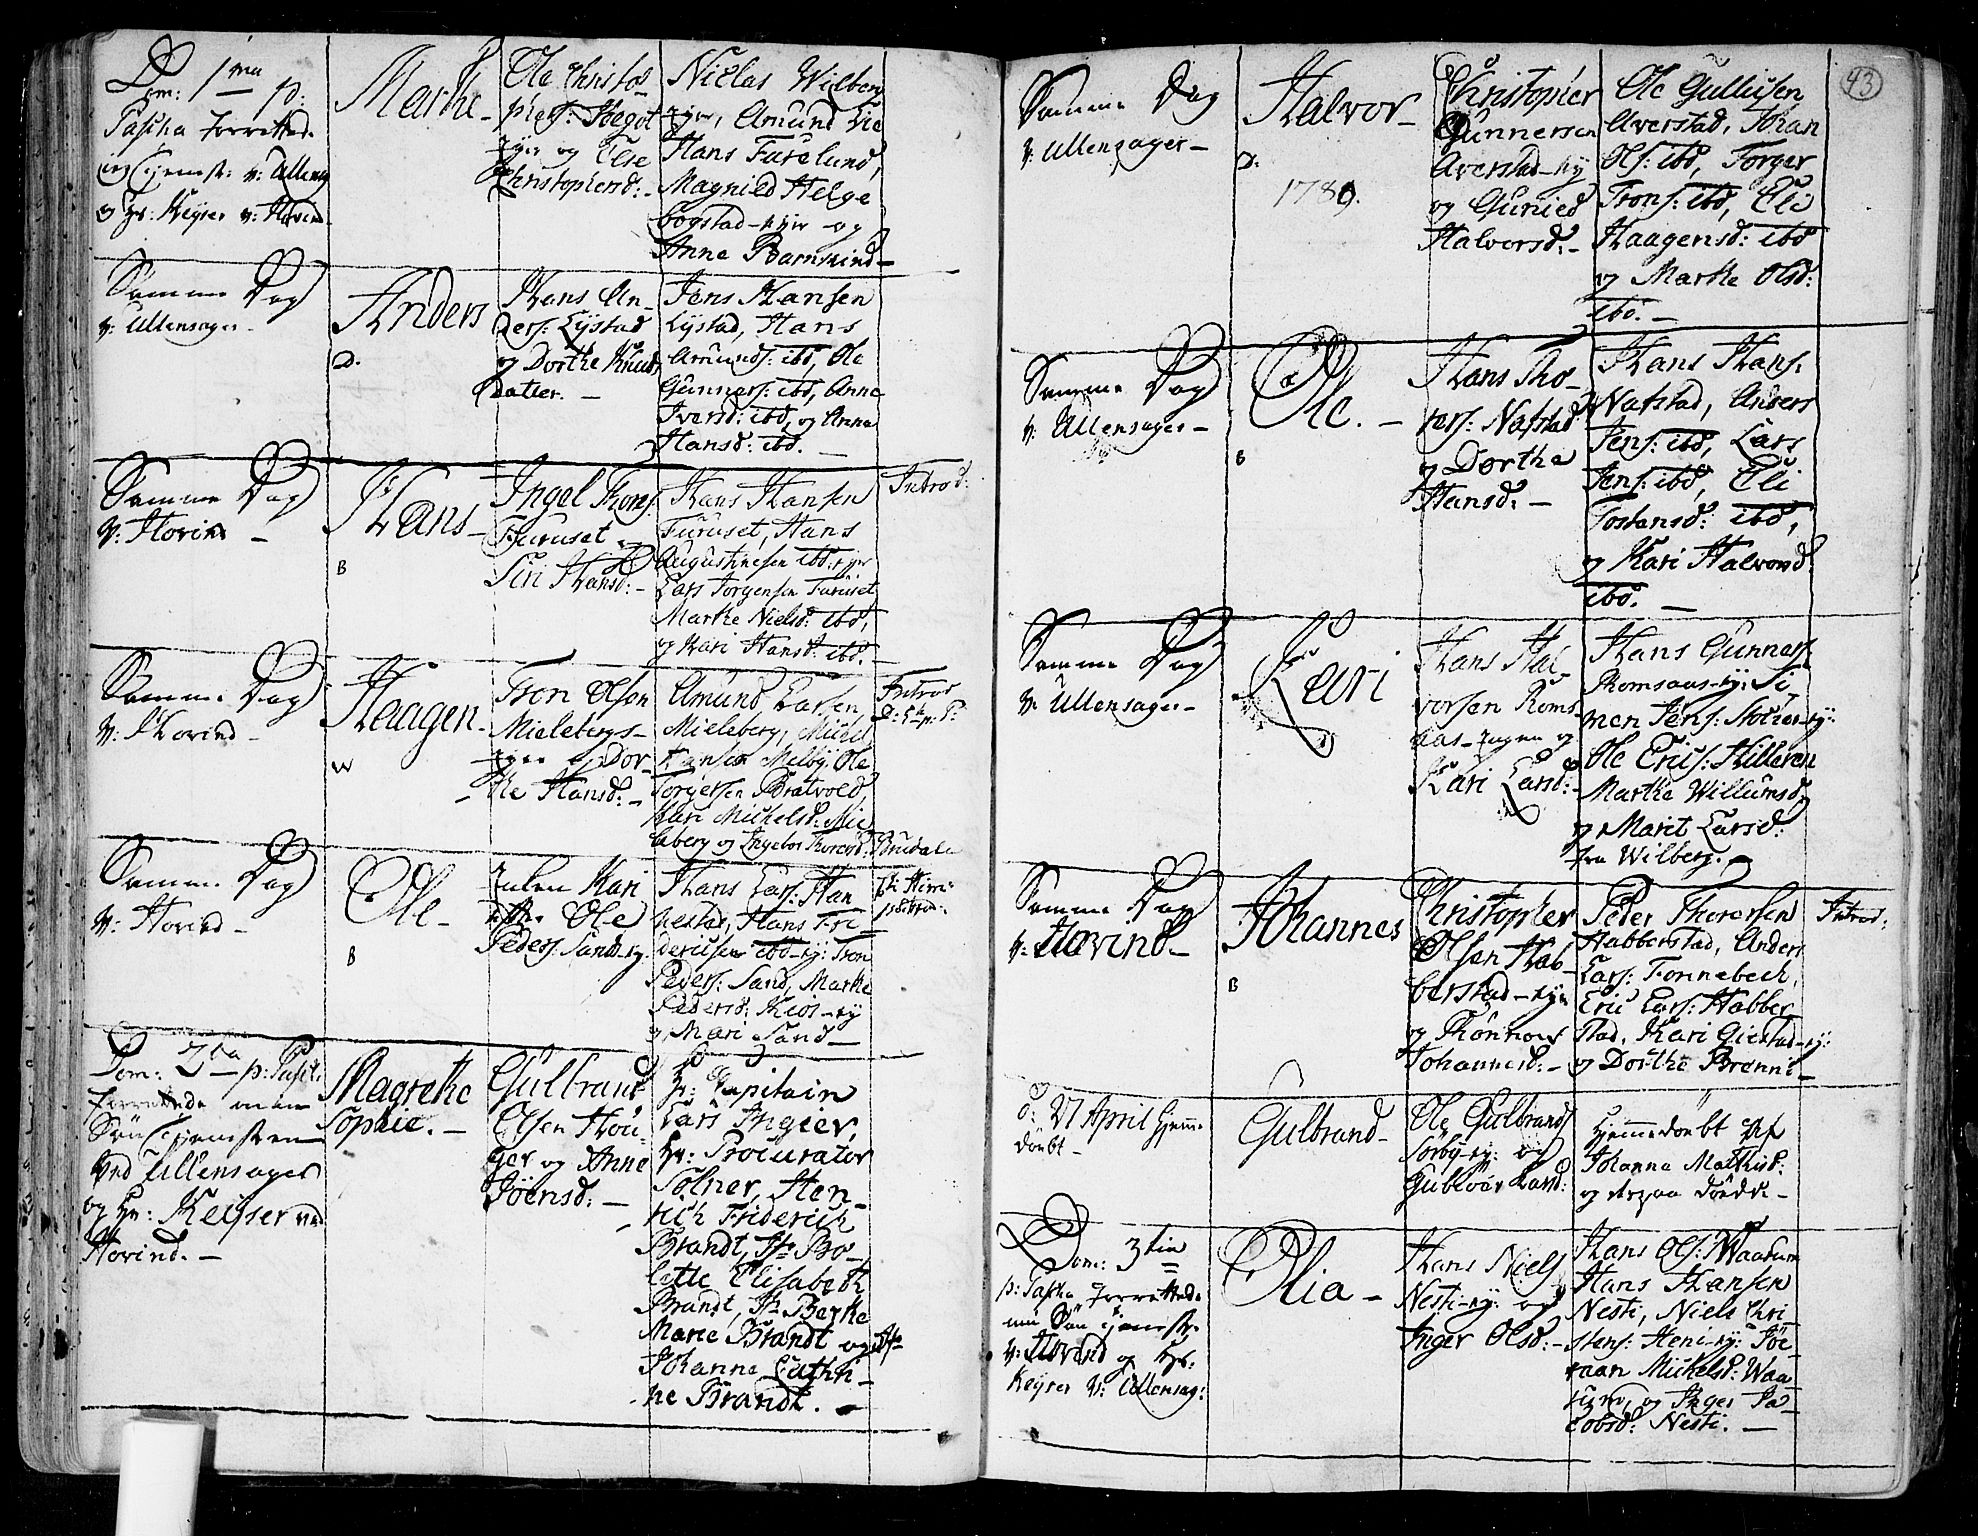 Dom: 1ma p:
Pascha forretted.
v: Ullens
og hr: Keyser v: Hovind
Marthe
Ole Christo-
phers: Hegot
eyer og Else
Christophersd: -
Niclas Wilberg
eyer, Amund Lie
Hans Fuselund,
Magnild Helge
bogstad-eyer og
Anne Barnskind -
Samme Dag
v: Ullensager -
Anders
D.
Hans An-
ders: Lystad
og Dorthe Knuds
datter. -
Jens Hansen
Lystad, Hans
Amunds: ibd, Ole
Gunners: ibd, Anne
Iversd: ibd, og Anna
Hansd: ibd. -
Samme Dag
v: Hovind -
Hans -
B
Ingel Trons:
Furuset og
Siri Hansd: -
Hans Hansen
Furuset, Hans
Augustinesen ibd: eyer
Lars Torgersen Furuset
Marthe Nielsd: ibd,
og Kari Hansd: ibd. -
Introd:
Samme Dag
v: Hovind -
Haagen
W
Tron Olsen
Mielebergs-
eyer og Dor-
the Hansd: -
Amund Larsen
Mieleberg, Michel
Hansen Melby, Ole
Torgersen Bratvold
Kari Michelsd: Mie
leberg og Ingebor Thoresd:
Introd
D: 5te p: P:
Samme Dag
v: Hovind -
Ole -
B
Kari
Ole
Peders: Sand-ey.
Hans Lars: Han
nestad, Hans Fri-
derichsen ibd-ey: Tron
Peders: Sand, Marthe
Pedersd: Kios-ey
og Mari Sand -
Brudale
Dom: 2da p: Pasch:
forrettede
Tienesten
ved Ullensager
og Hr: Keyser ved
Hovind. -
Magrethe
Sophie. -
Gulbrand
Olsen Hou-
ger og Anne
Joensd: -
Hr: Capitain
Lars Ingier,
Hr: Procurator
Tolner, Hen-
rich Friderich
Brandt, Jfr Bo-
lette Elisabeth
Brandt, Jfr Berthe
Marie Brandt og Jfr
Johanna Cathri-
ne Brandt. -
43
Samme Dag
v: Ullensager -
Halvor -
D.
1789.
Christopher
Gunnersen
Averstad-ey
og Gunild
Halvorsd. -
Ole Gulliksen
Averstad, Johan
Ols: ibd, Torger
Trons: ibd, Eli
Haagensd: ibd
og Marthe Olsd:
ibd. -
Samme Dag
v: Ullensager -
Ole. -
B
Hans Tho-
ers: Nafstad
og Dorthe
Hansd: -
Hans Hans:
Nafstad, Anders
Jens: ibd, Lars
Jens: ibd, Eli
Tostensd: ibd,
og Kari Halvorsd:
ibd. -
Samme Dag
v: Ullensager -
Kari
Hans Hal-
vorsen Roms-
aas-
Kari Larsd: -
Hans Gunners:
Romsaas-ey: Si-
men Jens: Stolter-ey:
Ole Erics: Hilleren
Marthe Willumsd:
og Marit Larsd:
fra Wilberg. -
Samme Dag
v: Hovind -
Johannes
B
Christopher
Olsen Hab-
berstad-eyer
og Rønnov
Johannesd: -
Peder Thorersen
Habberstad, Anders
Lars: Tonnebech,
Eric Lars: Habber
stad, Kari Gierstad-ey:
og Dorthe Brenni -
Introd:
d: 27 April Hjemme
døbt -
Gulbrand -
Ole Gulbrands:
Sørby-ey: og
Gublør Larsd:
Hjemmedøbt af
Johanna Mathisd:
og strax døde -
Dom: 3tia
p: Pascha forrettede
v: Hovind og Hr:
Keyser v: Ullensag:
Olia -
Hans Niels:
Nesti-ey: og
Inger Olsd: -
Hans Ols: Waarum
Hans Hansen
Nesti, Niels Chri-
stens: Heni-ey: Jø-
raan Michelsd: Waa-
rum, og Inger Ja-
cobsd: Nesti. -